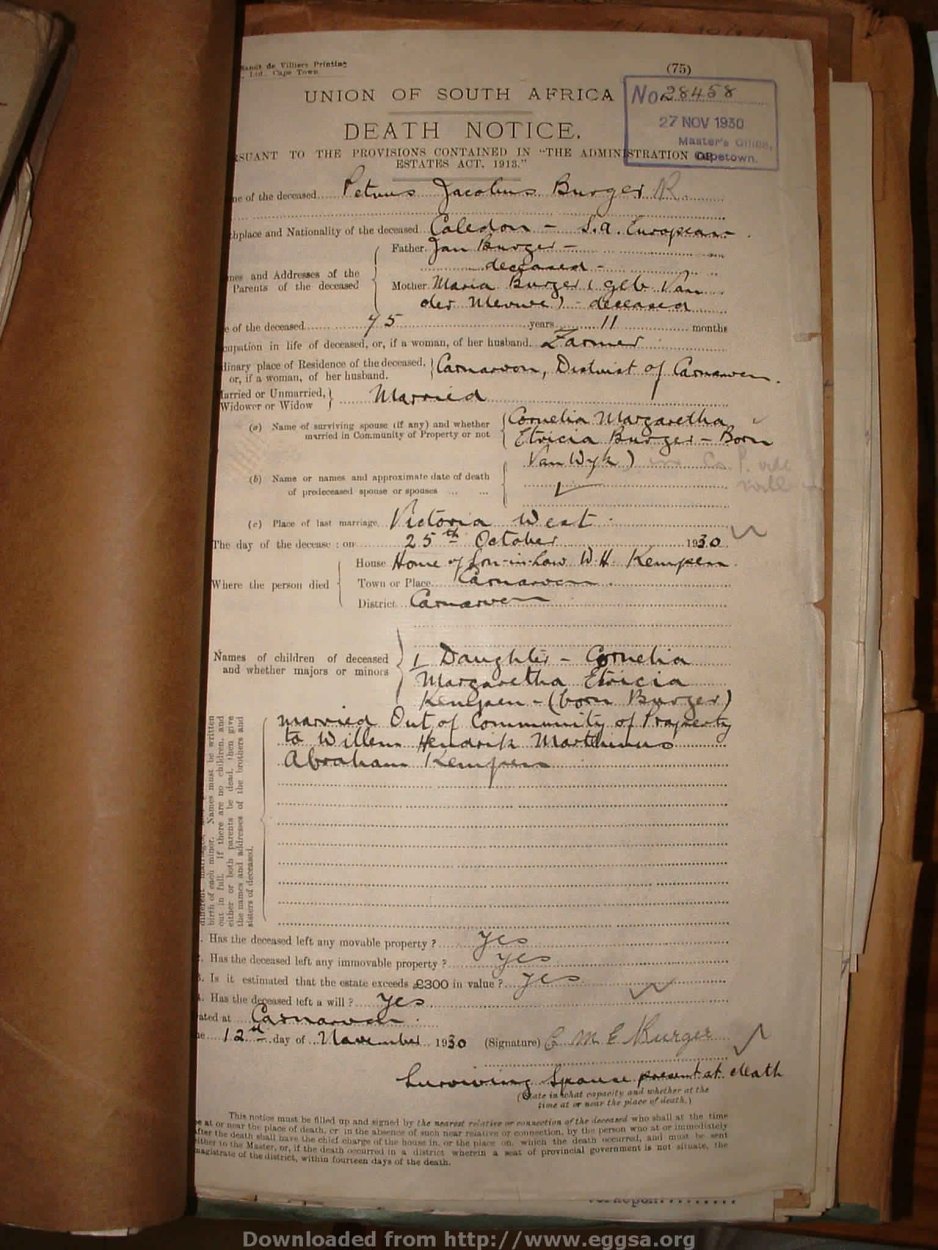 Nasou de Villiers Printing
Ltd., Cape Town
(75)
UNION OF SOUTH AFRICA
No 28458
27 NOV 1930
Master's Office,
Capetown.
DEATH NOTICE.
RSUANT TO THE PROVISIONS CONTAINED IN "THE ADMINISTRATION OF
ESTATES ACT, 1913."
me of the deceased Petrus Jacobus Burger
thplace and Nationality of the deceased Caledon - S.A. European -
mes and Addresses of the
Parents of the deceased
Father Jan Burger -
deceased -
Mother Maria Burger (geb Van
der Merwe) - deceased
e of the deceased 75 years 11 months
cupation in life of deceased, or, if a woman, of her husband. Farmer
dinary place of Residence of the deceased,
or, if a woman, of her husband.
Carnarvon, District of Carnarvon.
Married or Unmarried,
Widower or Widow
Married
(a) Name of surviving spouse (if any) and whether
married in Community of Property or not
Cornelia Margaretha
Etricia Burger - Born
Van Wyk)
(b) Name or names and approximate date of death
of predeceased spouse or spouses ... ...
(c) Place of last marriage Victoria West.
The day of the decease : on 25th October 1930
Where the person died
House Home of Son-in-Law W.H. Kempen.
Town or Place Carnarvon.
District Carnarvon
Names of children of deceased
and whether majors or minors
1 Daughter - Cornelia
Margaretha Etricia
Kempen - (born Burger)
married Out of Community of Property
to Willem Hendrik Marthinus
Abraham Kempen
birth of each minor. Names must be written
out in full. If there are no children, and
either or both parents be dead, then give
the names and addresses of the brothers and
sisters of deceased.
. Has the deceased left any movable property? Yes
. Has the deceased left any immovable property? Yes
3. Is it estimated that the estate exceeds £300 in value? Yes
4. Has the deceased left a will? Yes
ated at Carnarvon.
he 12th day of November 1930 (Signature) C M E Burger
Surviving Spouse present at death
(State in what capacity and whether at the
time at or near the place of death.)
This notice must be filled up and signed by the nearest relative or connection of the deceased who shall at the time
be at or near the place of death, or in the absence of such near relative or connection, by the person who at or immediately
after the death shall have the chief charge of the house in, or the place on, which the death occurred, and must be sent
either to the Master, or, if the death occurred in a district wherein a seat of provincial government is not situate, the
magistrate of the district, within fourteen days of the death.
Downloaded from http://www.eggsa.org